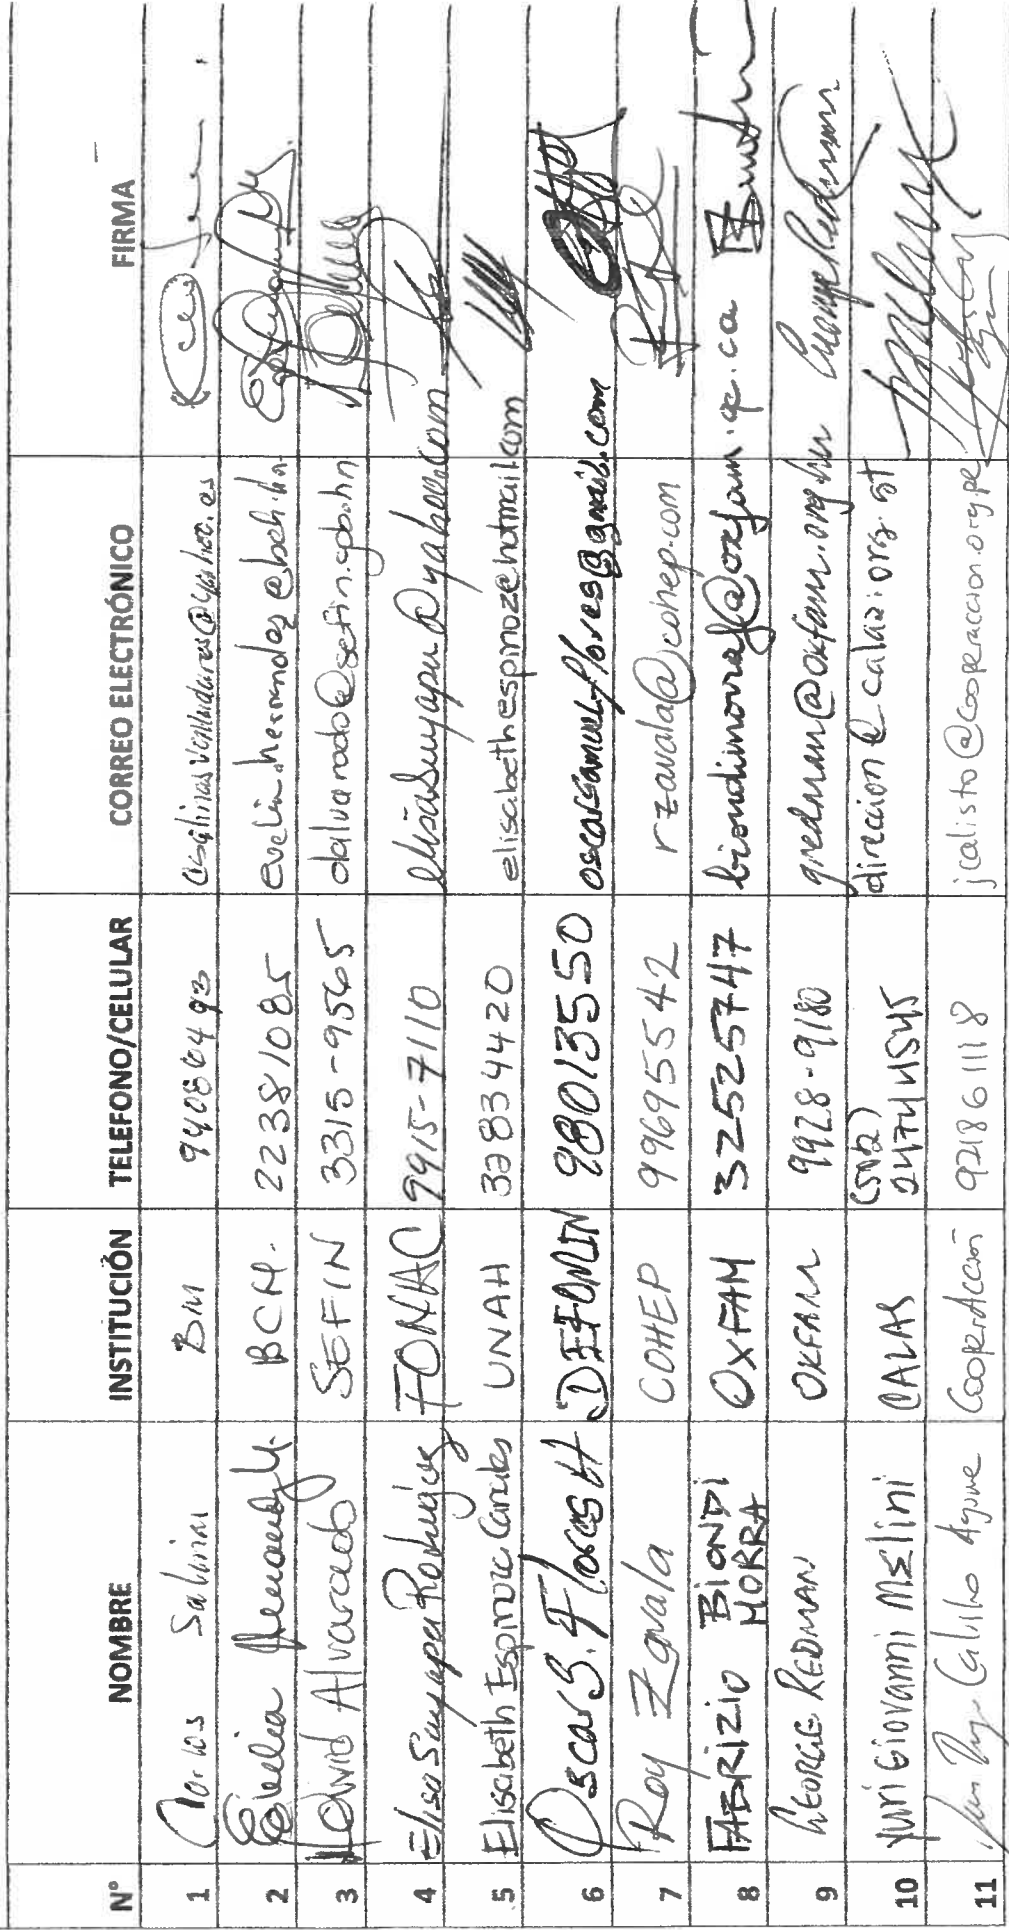 N° NOMBRE INSTITUCIÓN TELEFONO/CELULAR CORREO ELECTRÓNICO FIRMA
1 Carlos Salinas BM 94086493
2 Evelia Hernandez M. BCH. 22381085
3 David Alvarado SEFIN 3315-9565 dalvarado@sefin.gob.hn
4 Elisa Suyapa Rodríguez FONAC 9915-7110 elisasuyapa@yahoo.com
5 Elisabeth Espinoza Canales UNAH 32834420 elisabethespinoz@hotmail.com
6 Oscar S. Flores H DEFOMIN 98013550 oscarsamuelflores@gmail.com
7 Roy Zavala COHEP 99695542 rzavala@cohep.com
8 FABRIZIO BIONDI MORRA OXFAM 32525747 biondimorraf@oxfam.qc.ca
9 GEORGE REDMAN OXFAM 9928-9180 gredman@oxfam.org.hn George Redman
10 Yuri Giovanni Melini CALAS (502) 24744545 direcion@calas.org.gt
11 Calisto CooperAcción 921861118 jcalisto@cooperaccion.org.pe